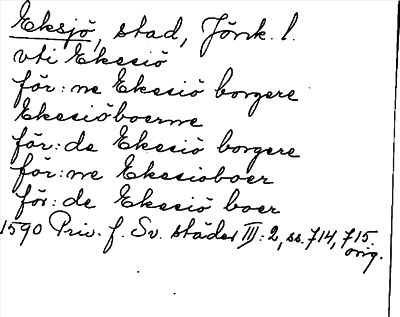 Eksjö, stad, Jönk. l.
vti Ekesiö
för:ne Ekesiö borgere
Ekesiöboerne
för:de Ekesiö borgere
för:ne Ekesioboer
för:de Ekesiö boer
1590 Priv. f. Sv. städer III:2, ss. 714, 715.
orig.